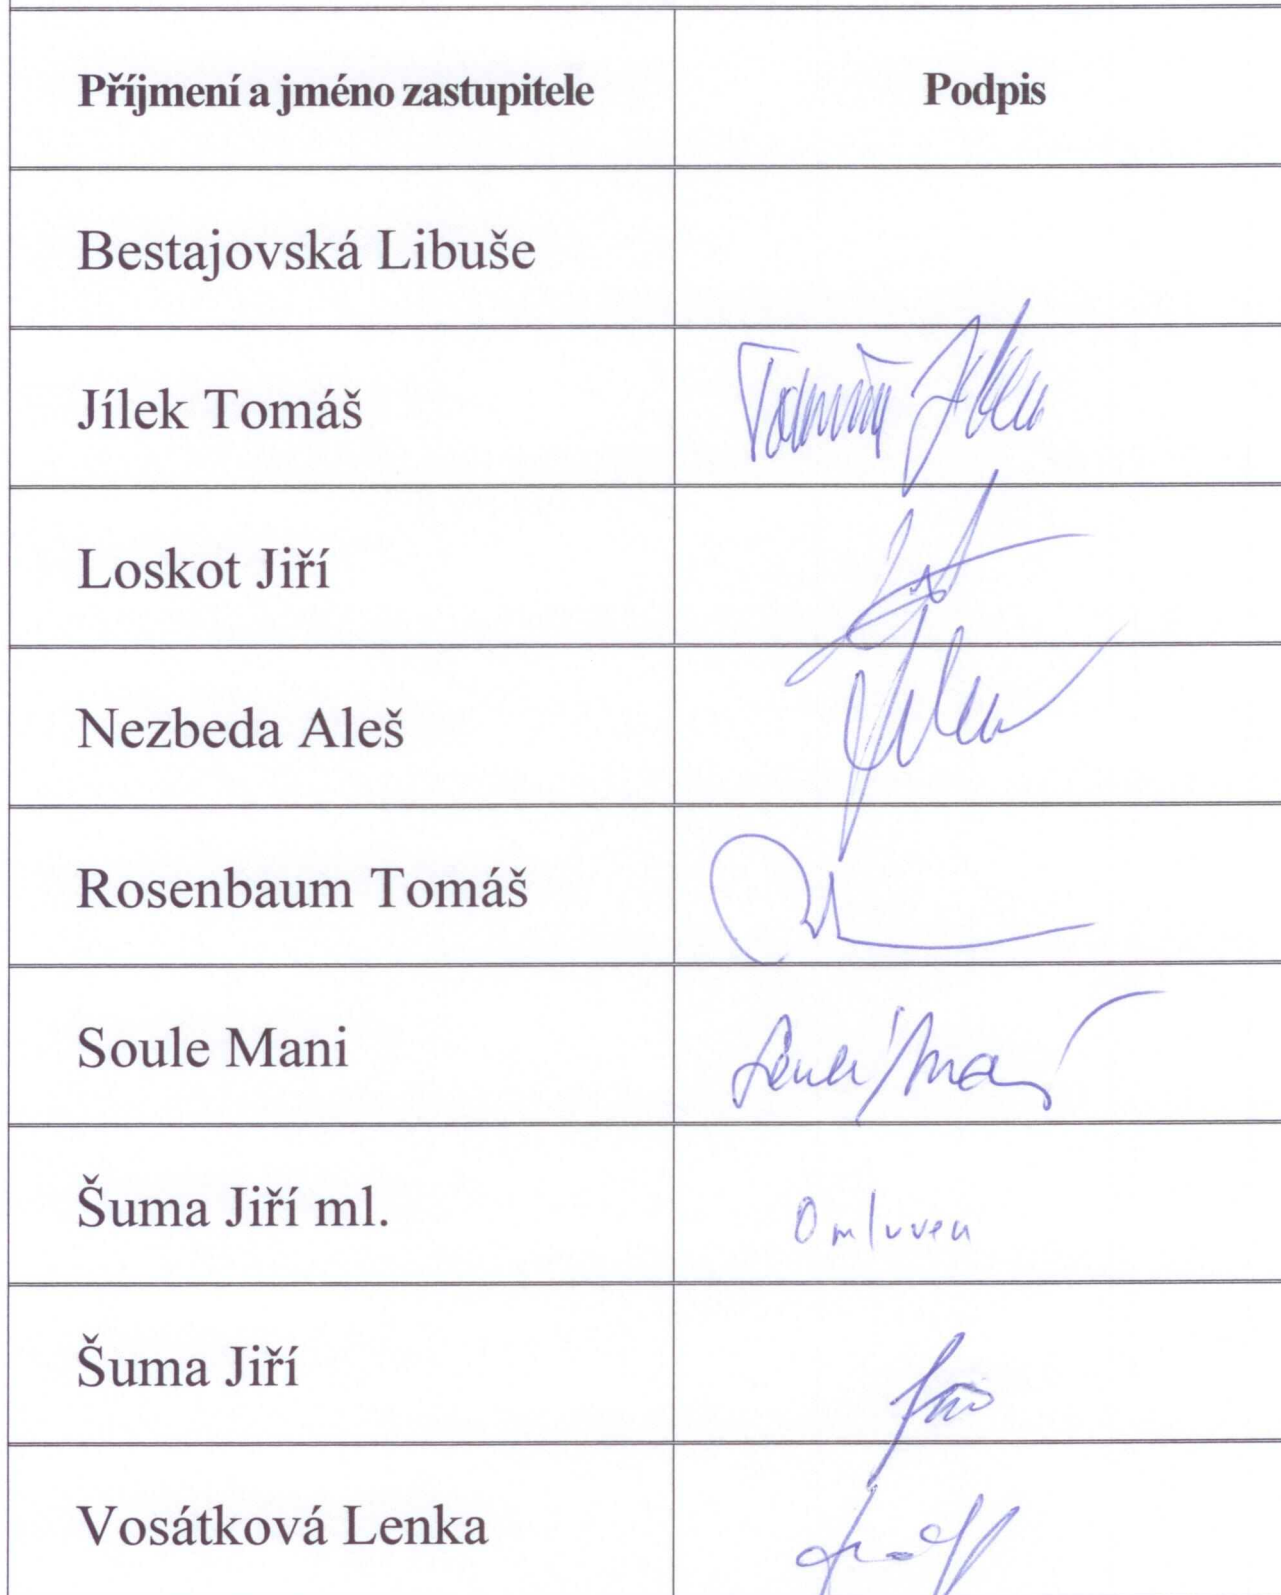 Příjmení a jméno zastupitele Podpis
Bestajovská Libuše
Jílek Tomáš
Loskot Jiří
Nezbeda Aleš
Rosenbaum Tomáš
Soule Mani
Šuma Jiří ml. Omluven
Šuma Jiří
Vosátková Lenka